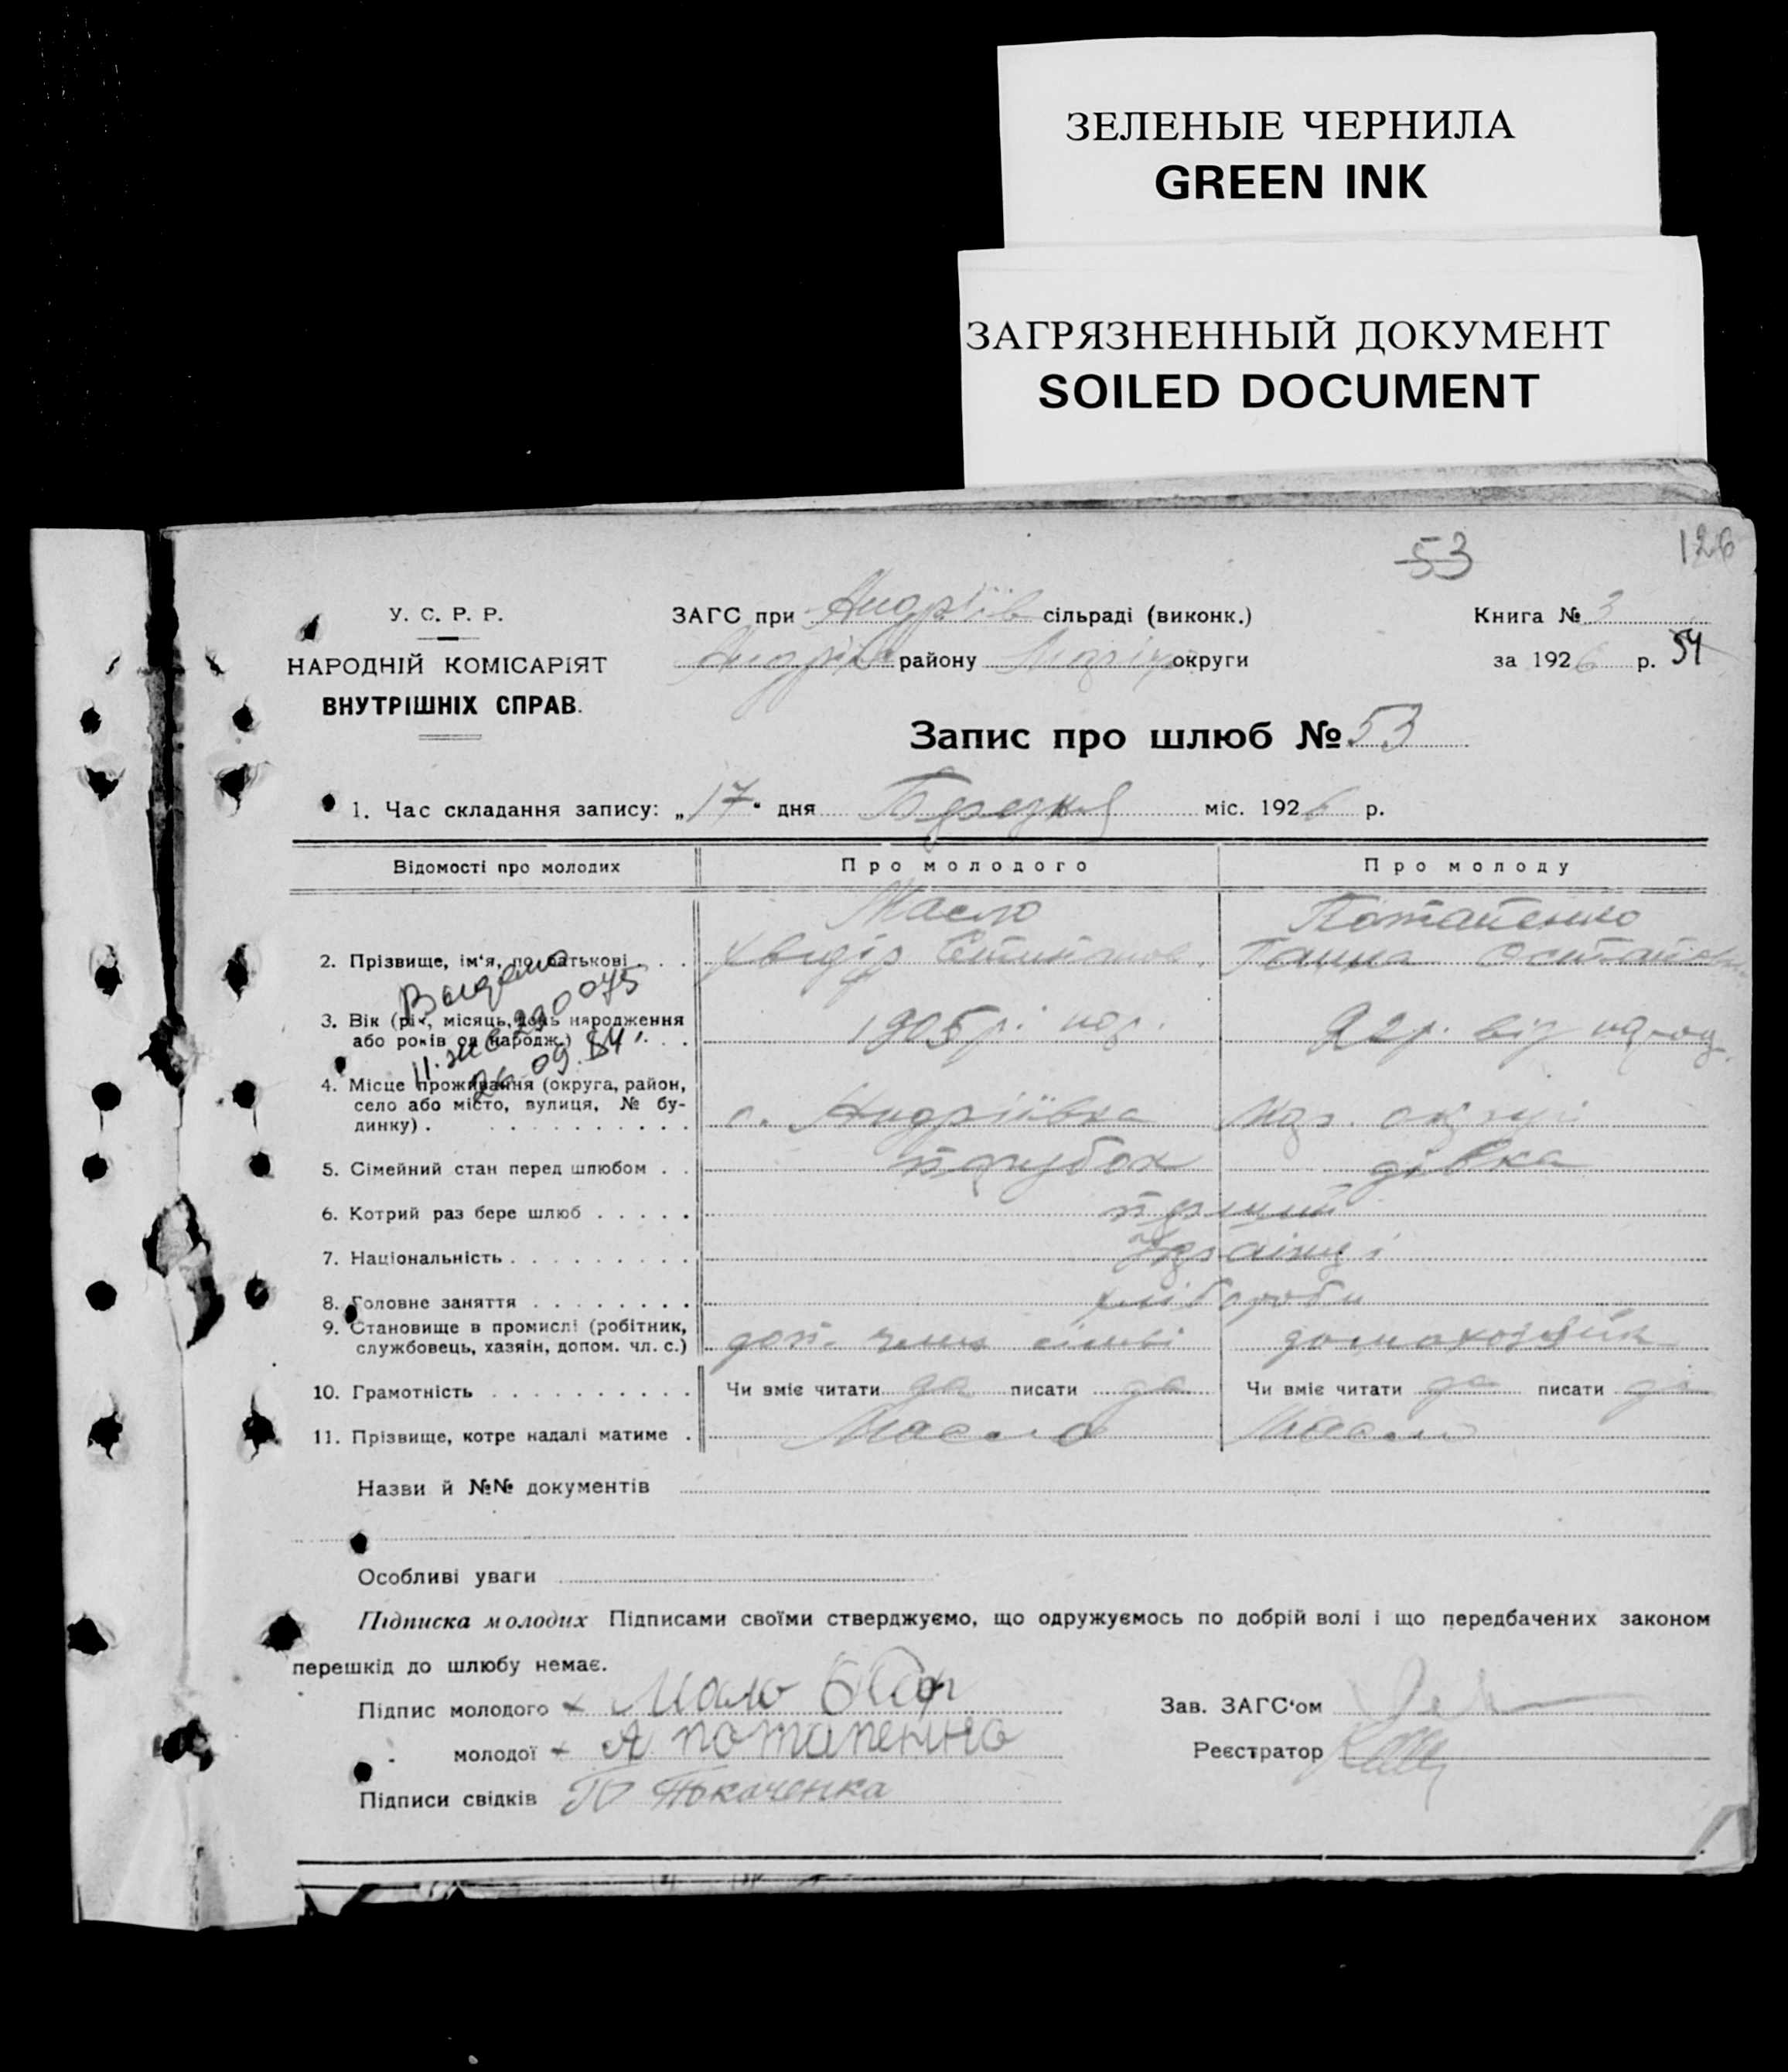 ЗЕЛЕНЫЕ ЧЕРНИЛА
GREEN INK
ЗАГРЯЗНЕННЫЙ ДОКУМЕНТ
SOILED DOCUMENT
53 126
У. С. Р. Р.
НАРОДНІЙ КОМІСАРІЯТ
ВНУТРІШНІХ СПРАВ.
ЗАГС при Андріїв сільраді (виконк.)
Андріїв району округи
Книга № 3
за 1926 р. 54
Запис про шлюб № 53
1. Час складання запису: „17" дня Березня міс. 1926 р.
Відомості про молодих Про молодого Про молоду
Масло Потапенко
2. Прізвище, ім'я, по батькові . . . Хведір Ганна
3. Вік (рік, місяць, день народження
або років од народж.) . . . 1905 р. нар. 22 р. від народ.
Видано
290075
26.09.84
4. Місце проживання (округа, район,
село або місто, вулиця, № бу-
динку) . . . . . . . . . . . с. Андріївка округи
5. Сімейний стан перед шлюбом . . парубок дівка
6. Котрий раз бере шлюб . . . . . перший
7. Національність . . . . . . . . . Українці
8. Головне заняття . . . . . . . . хлібороби
9. Становище в промислі (робітник,
службовець, хазяін, допом. чл. с.) доп. член сімьї
10. Грамотність . . . . . . . . . . Чи вміє читати да писати да Чи вміє читати да писати да
11. Прізвище, котре надалі матиме . Масло Масло
Назви й №№ документів
Особливі уваги
Підписка молодих Підписами своїми стверджуємо, що одружуємось по добрій волі і що передбачених законом
перешкід до шлюбу немає.
Підпис молодого × Зав. ЗАГС'ом
молодої × Реєстратор
Підписи свідків Ткаченка